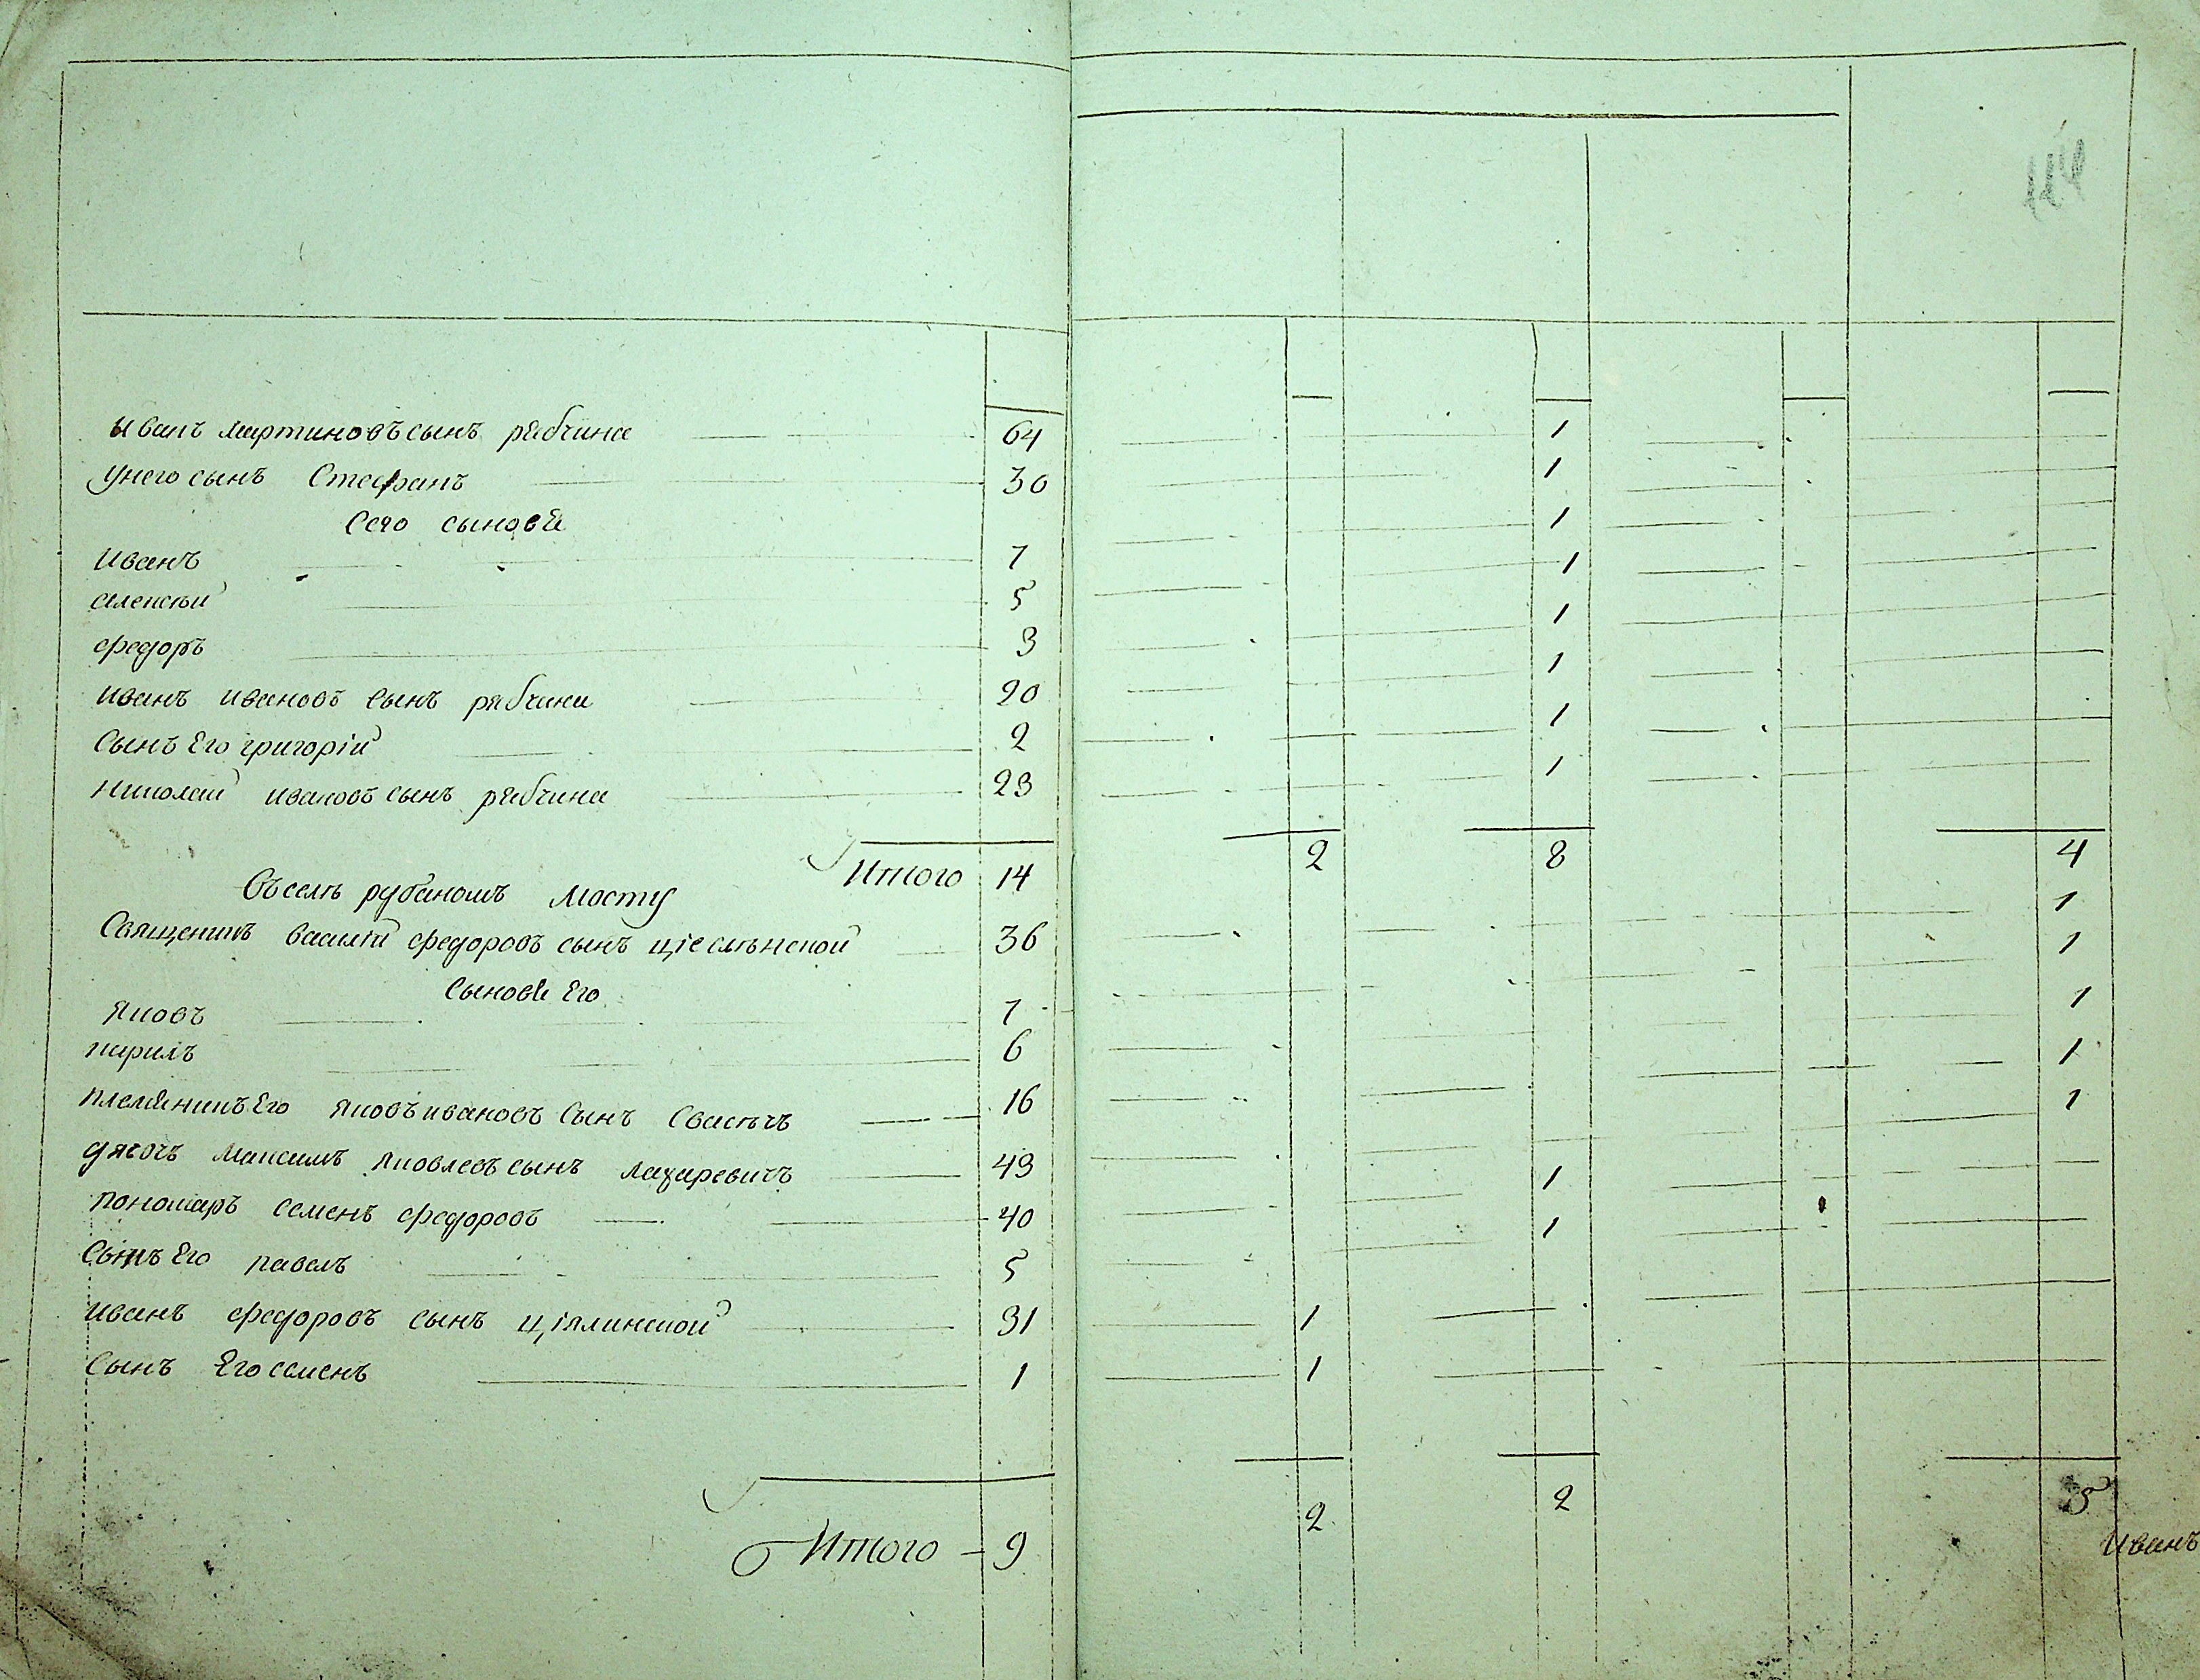 114
Иванъ мартиновъ сынъ рябчина 64 1
Унего сынъ Стефанъ 30 1
Сего сыновѣ 1
Иванъ 7 1
алексѣй 5 1
федоръ 3 1
иванъ ивановъ сынъ рябчина 20 1
Сынъ Его григорій 2 1
николай ивановъ сынъ рябчина 23
Итого 14 2 8 4
Въселѣ рубаномъ мосту 1
Священикъ василій федоровъ сынъ 36 1
Сыновѣ Его 1
Яковъ 7
кирилъ 6 1
племѣникъ Его яковъ ивановъ Сынъ 16 1
дячокъ максимъ яковлевъ сынъ лазаревичъ 43 1
пономарь семенъ федоровъ 40 1
Сынъ Его павелъ 5
иванъ федоровъ сынъ 31 1
Сынъ Его семенъ 1 1
Итого 9 2 2 5
Иванъ